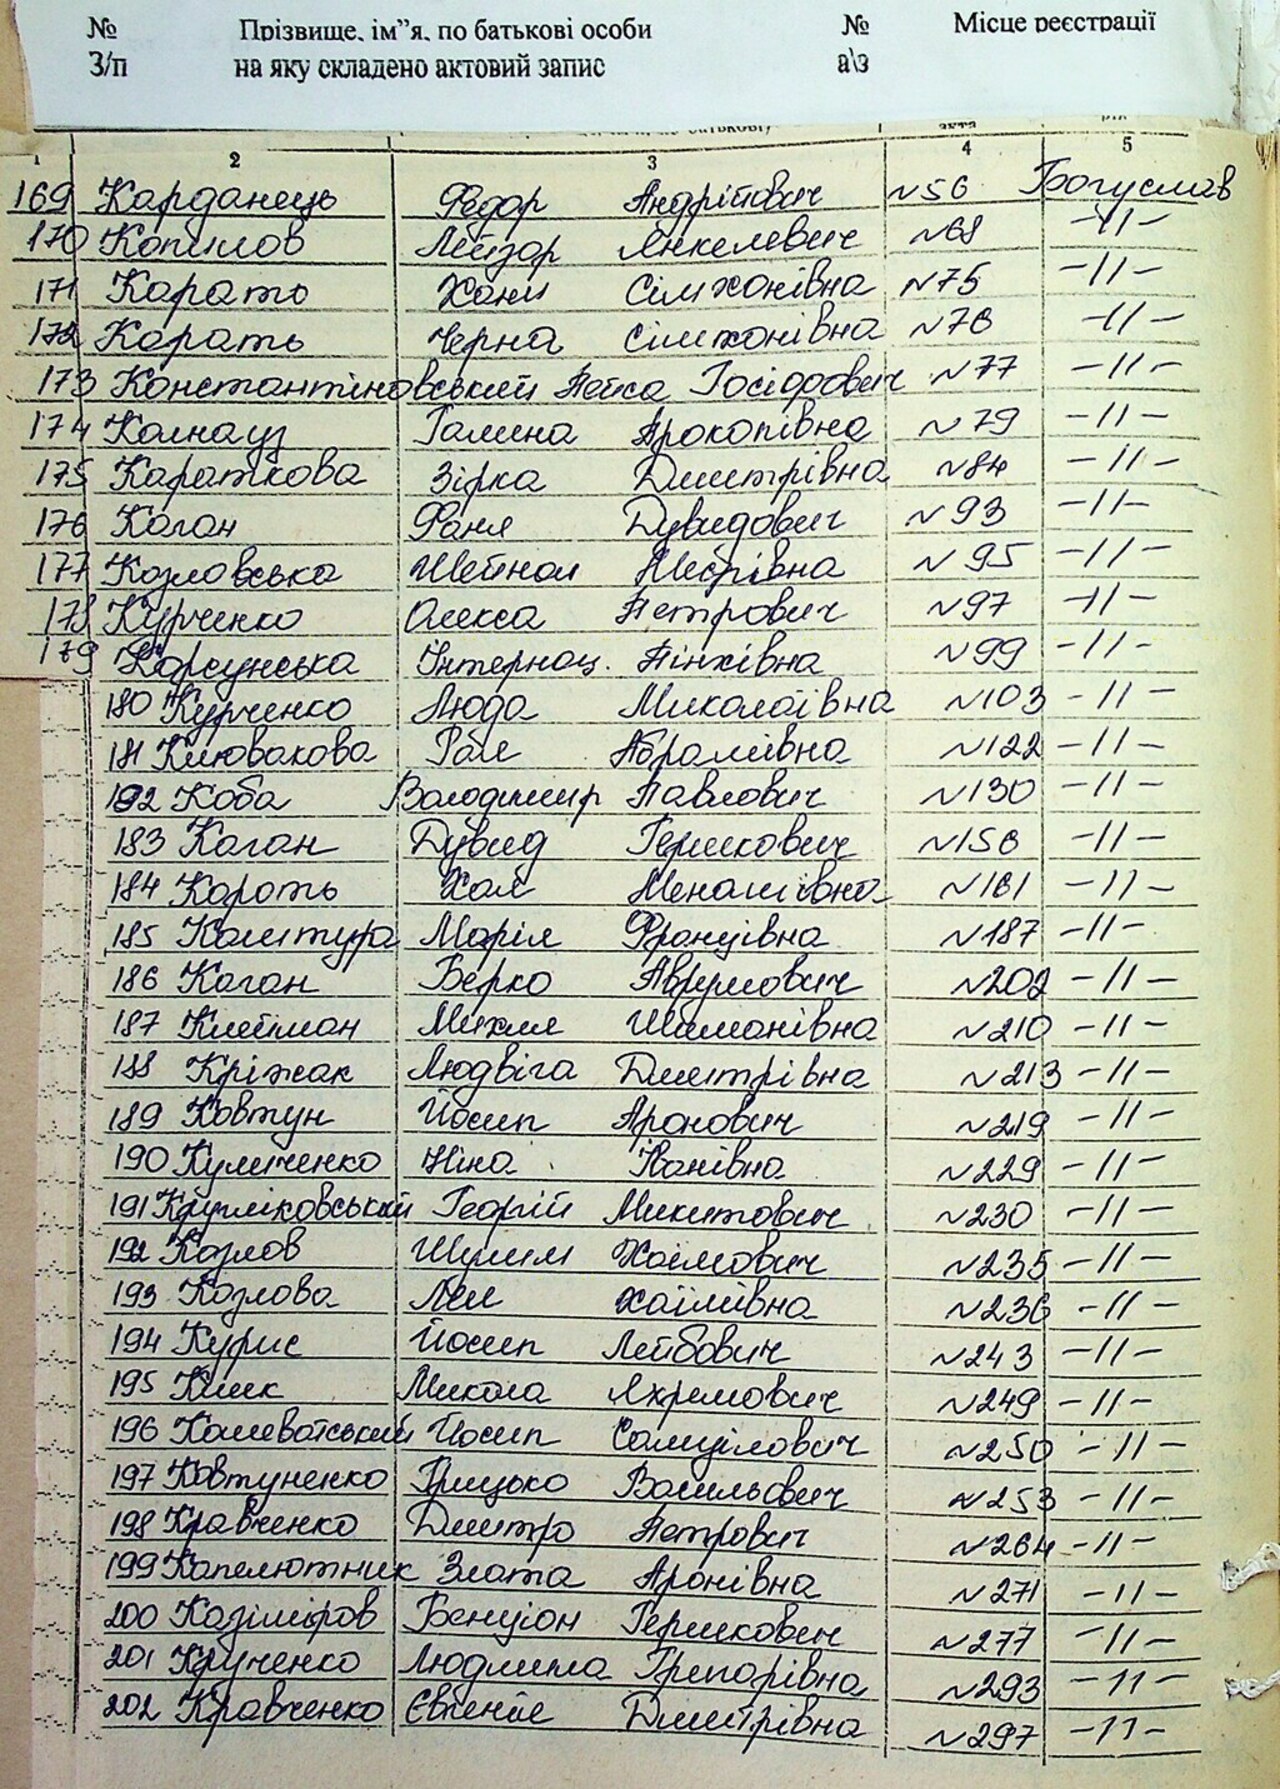 № Прізвище, ім"я, по батькові особи № Місце реєстрації
З/п на яку складено актовий запис а\з
1 2 3 4 5
169 Карданець Федор Андрійович №56 Богуслав
170 Копилов Лейзор Янкелевич №68 -11-
171 Карато Хани Сімхонівна №75 -11-
172 Корать Черна Сімхонівна №76 -11-
173 Константіновський Пейса Іосідрович №77 -11-
174 Колнауз Галина Прокопівна №79 -11-
175 Караткова Зірка Дмитрівна №84 -11-
176 Коган Фаня Дувидович №93 -11-
177 Козловська Шейнол Меєрівна №95 -11-
178 Курченко Олекса Петрович №97 -11-
179 Корсунська Інтернац. Пінхівна №99 -11-
180 Курченко Люда Миколаївна №103 -11-
181 Клювакова Рая Абрамівна №122 -11-
182 Коба Володимир Павлович №130 -11-
183 Каган Дувид Гершкович №156 -11-
184 Короть Хая Менашівна №161 -11-
185 Каштура Марія Францівна №187 -11-
186 Каган Берко Аврумович №202 -11-
187 Клейман Михля Шаманівна №210 -11-
188 Кріжак Людвіга Дмитрівна №213 -11-
189 Ковтун Йосип Аронович №219 -11-
190 Куліченко Ніна Іванівна №229 -11-
191 Кругліковський Георгій Микитович №230 -11-
192 Козлов Шулим Хаімович №235 -11-
193 Козлова Лея Хаїмівна №236 -11-
194 Курис Йосип Лейбович №243 -11-
195 Клик Микола Яхремович №249 -11-
196 Каневотський Йосип Самуілович №250 -11-
197 Ковтуненко Грицько Васильович №253 -11-
198 Кравченко Дмитро Петрович №264 -11-
199 Капелютник Злата Аронівна №271 -11-
200 Казіміров Бенціон Гершкович №277 -11-
201 Крученко Людмила Григорівна №293 -11-
202 Кравченко Євгенія Дмитрівна №297 -11-